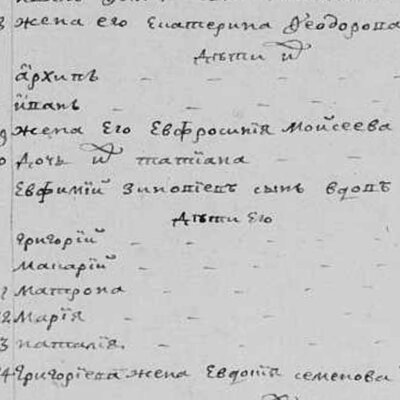 3 жена его Екатерина Ѳеодорова
Дѣти их
Архипъ
Іванъ
9 жена Его Евфросинія Моѵсеева
0 Дочь их татіана
Евфимій Зиновіевъ сынъ вдовъ
Дѣти Его
Григорій
Макарій
1 Матрона
2 Марія
3 наталія.
4 Григоріева жена Евдокія семенова